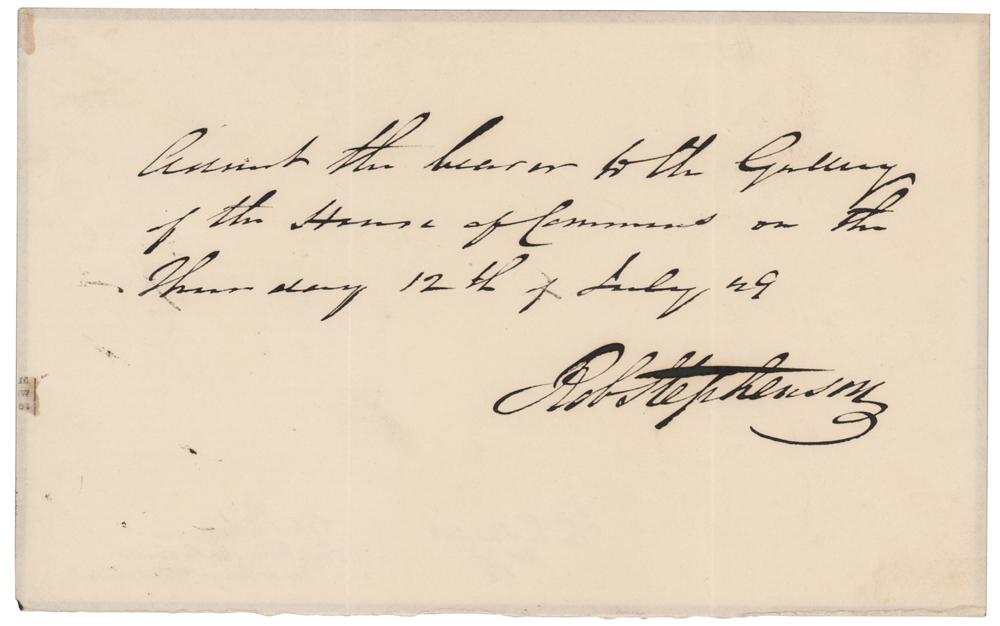 Admit the bearer to the Gallery
of the House of Commons on the
Thursday 12th of July 49
Rob Stephenson